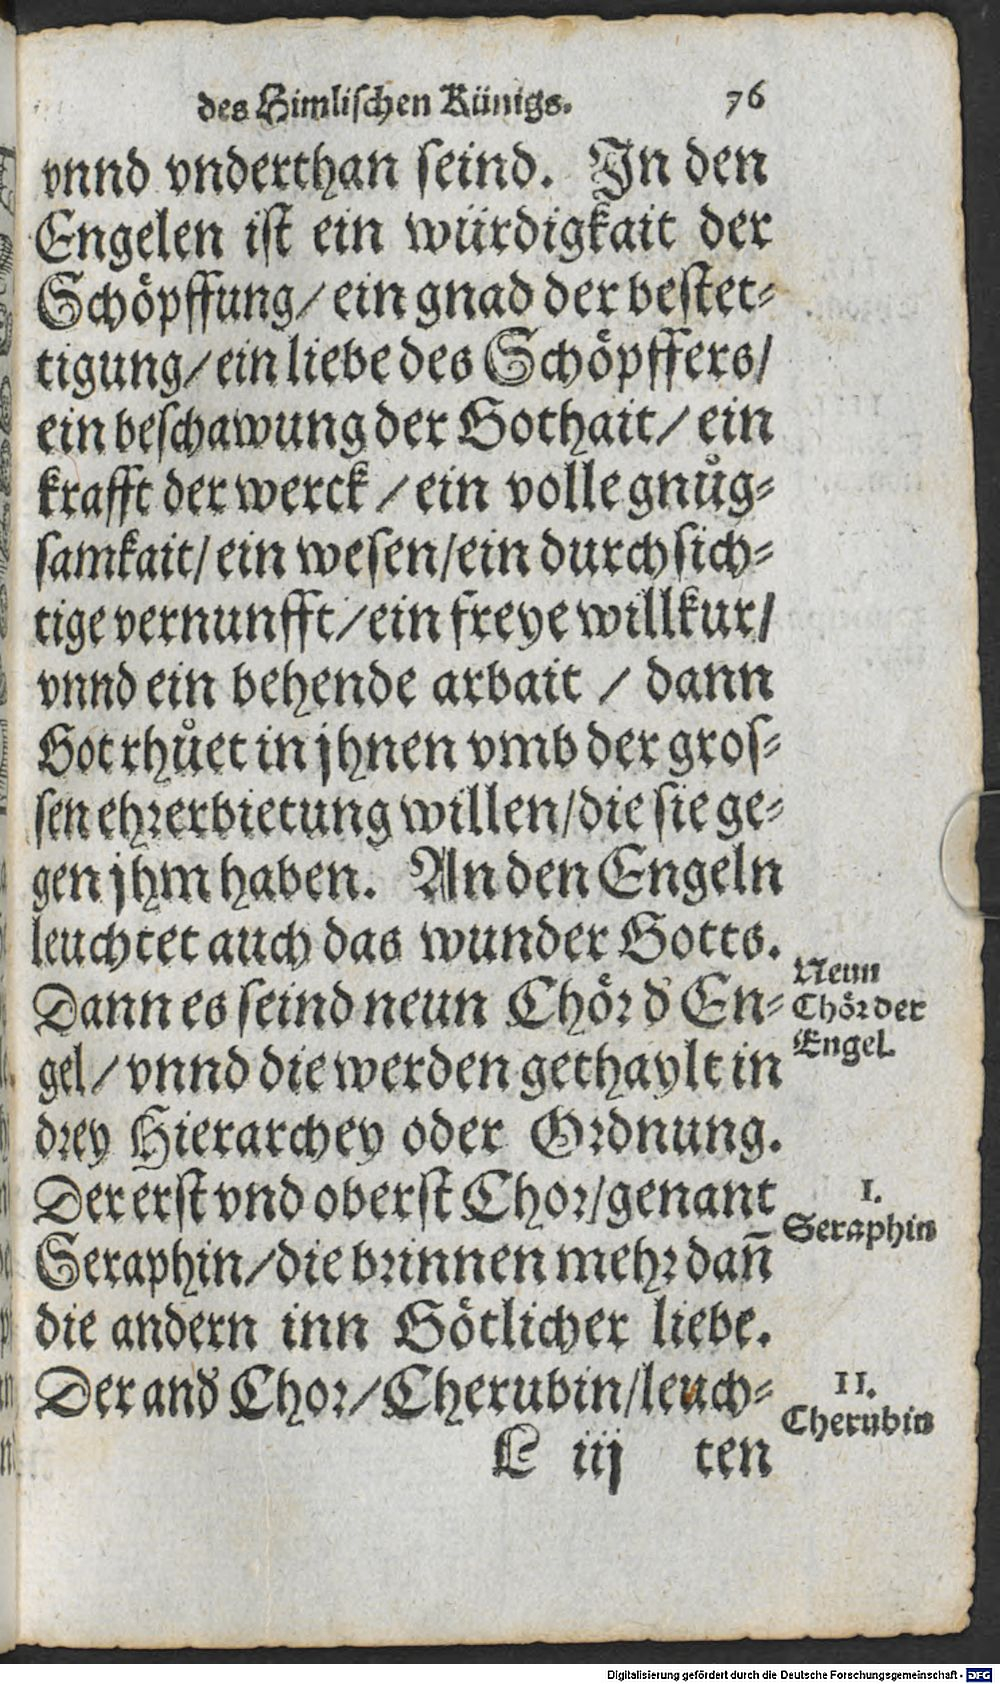 des Himlischen Künigs. 76
vnnd vnderthan seind. In den
Engelen ist ein würdigkait der
Schöpffung/ ein gnad der bestet-
tigung/ ein liebe des Schöpffers/
ein beschawung der Gothait/ ein
krafft der werck / ein volle gnůg-
samkait/ ein wesen/ein durchsich-
tige vernunfft/ein freye willkur/
vnnd ein behende arbait / dann
Got rhůet in jhnen vmb der gros-
sen ehrerbietung willen/die sie ge-
gen jhm haben. An den Engeln
leuchtet auch das wunder Gotts.
Dann es seind neun Chör d' En-
gel/ vnnd die werden gethaylt in
drey Hierarchey oder Ordnung.
Der erst vnd oberst Chor/genant
Seraphin/die brinnen mehr dañ
die andern inn Götlicher liebe.
Der and' Chor/Cherubin/leuch-
L iij ten
Neun
Chör der
Engel.
I.
Seraphin
II.
Cherubin
Digitalisierung gefördert durch die Deutsche Forschungsgemeinschaft - DFG